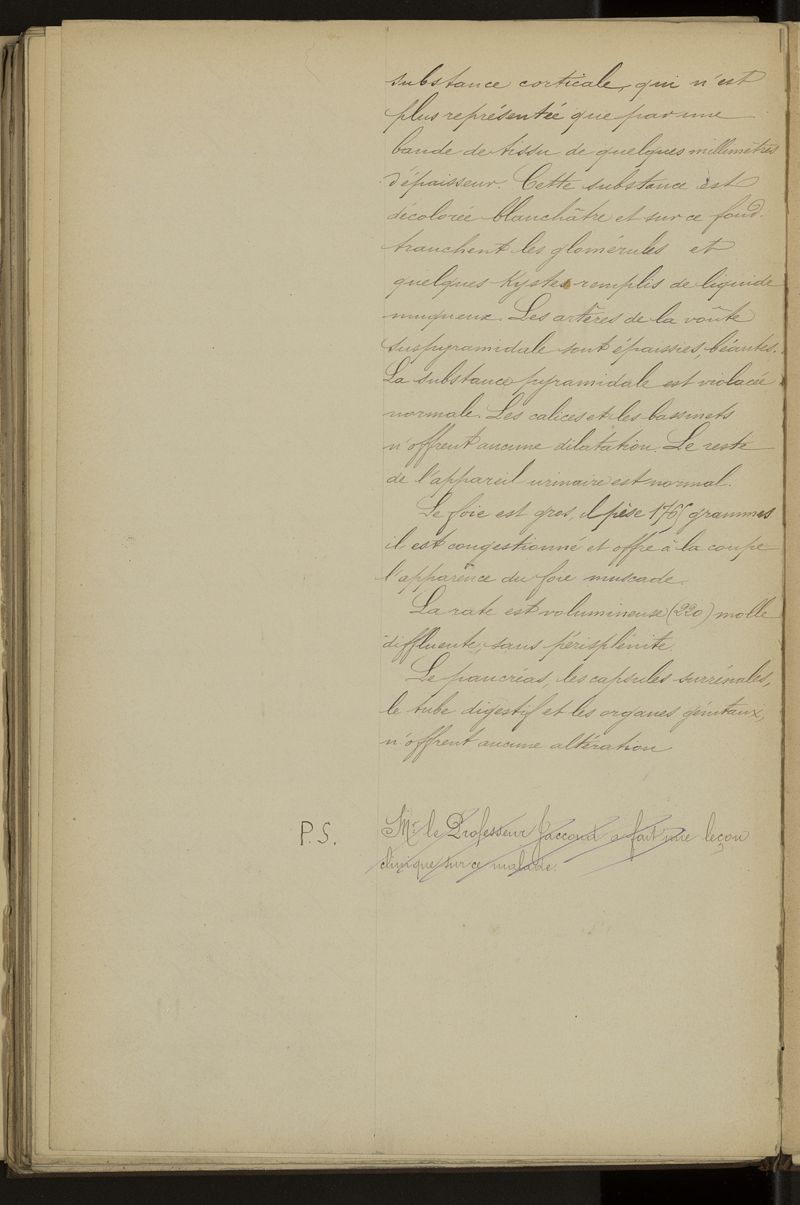 substance corticale, qui n'est
plus représentée que par une
bande de tissu de quelques millimètres
d'épaisseur. Cette substance est
décolorée blanchâtre et sur ce fond.
tranchent les glomérules et
quelques Kystes remplis de liquide
muqueux. Les artères de la voûte
suspyramidale sont épaissies, béantes.
La substance pyramidale est violacée
normale. Les calices et les bassinets
n'offrent aucune dilatation. Le reste
de l'appareil urinaire est normal.
Le foie est gros, il pèse grammes
il est congestionné et offre à la coupe
l'apparence du foie muscade.
La rate est volumineuse (220) molle
diffluente, sans périsplénite.
Le pancréas, les capsules surrénales,
le tube digestif et les organes génitaux,
n'offrent aucune altération
P.S. Mr. le Professeur Jaccoud a fait une leçon
clinique sur ce malade.